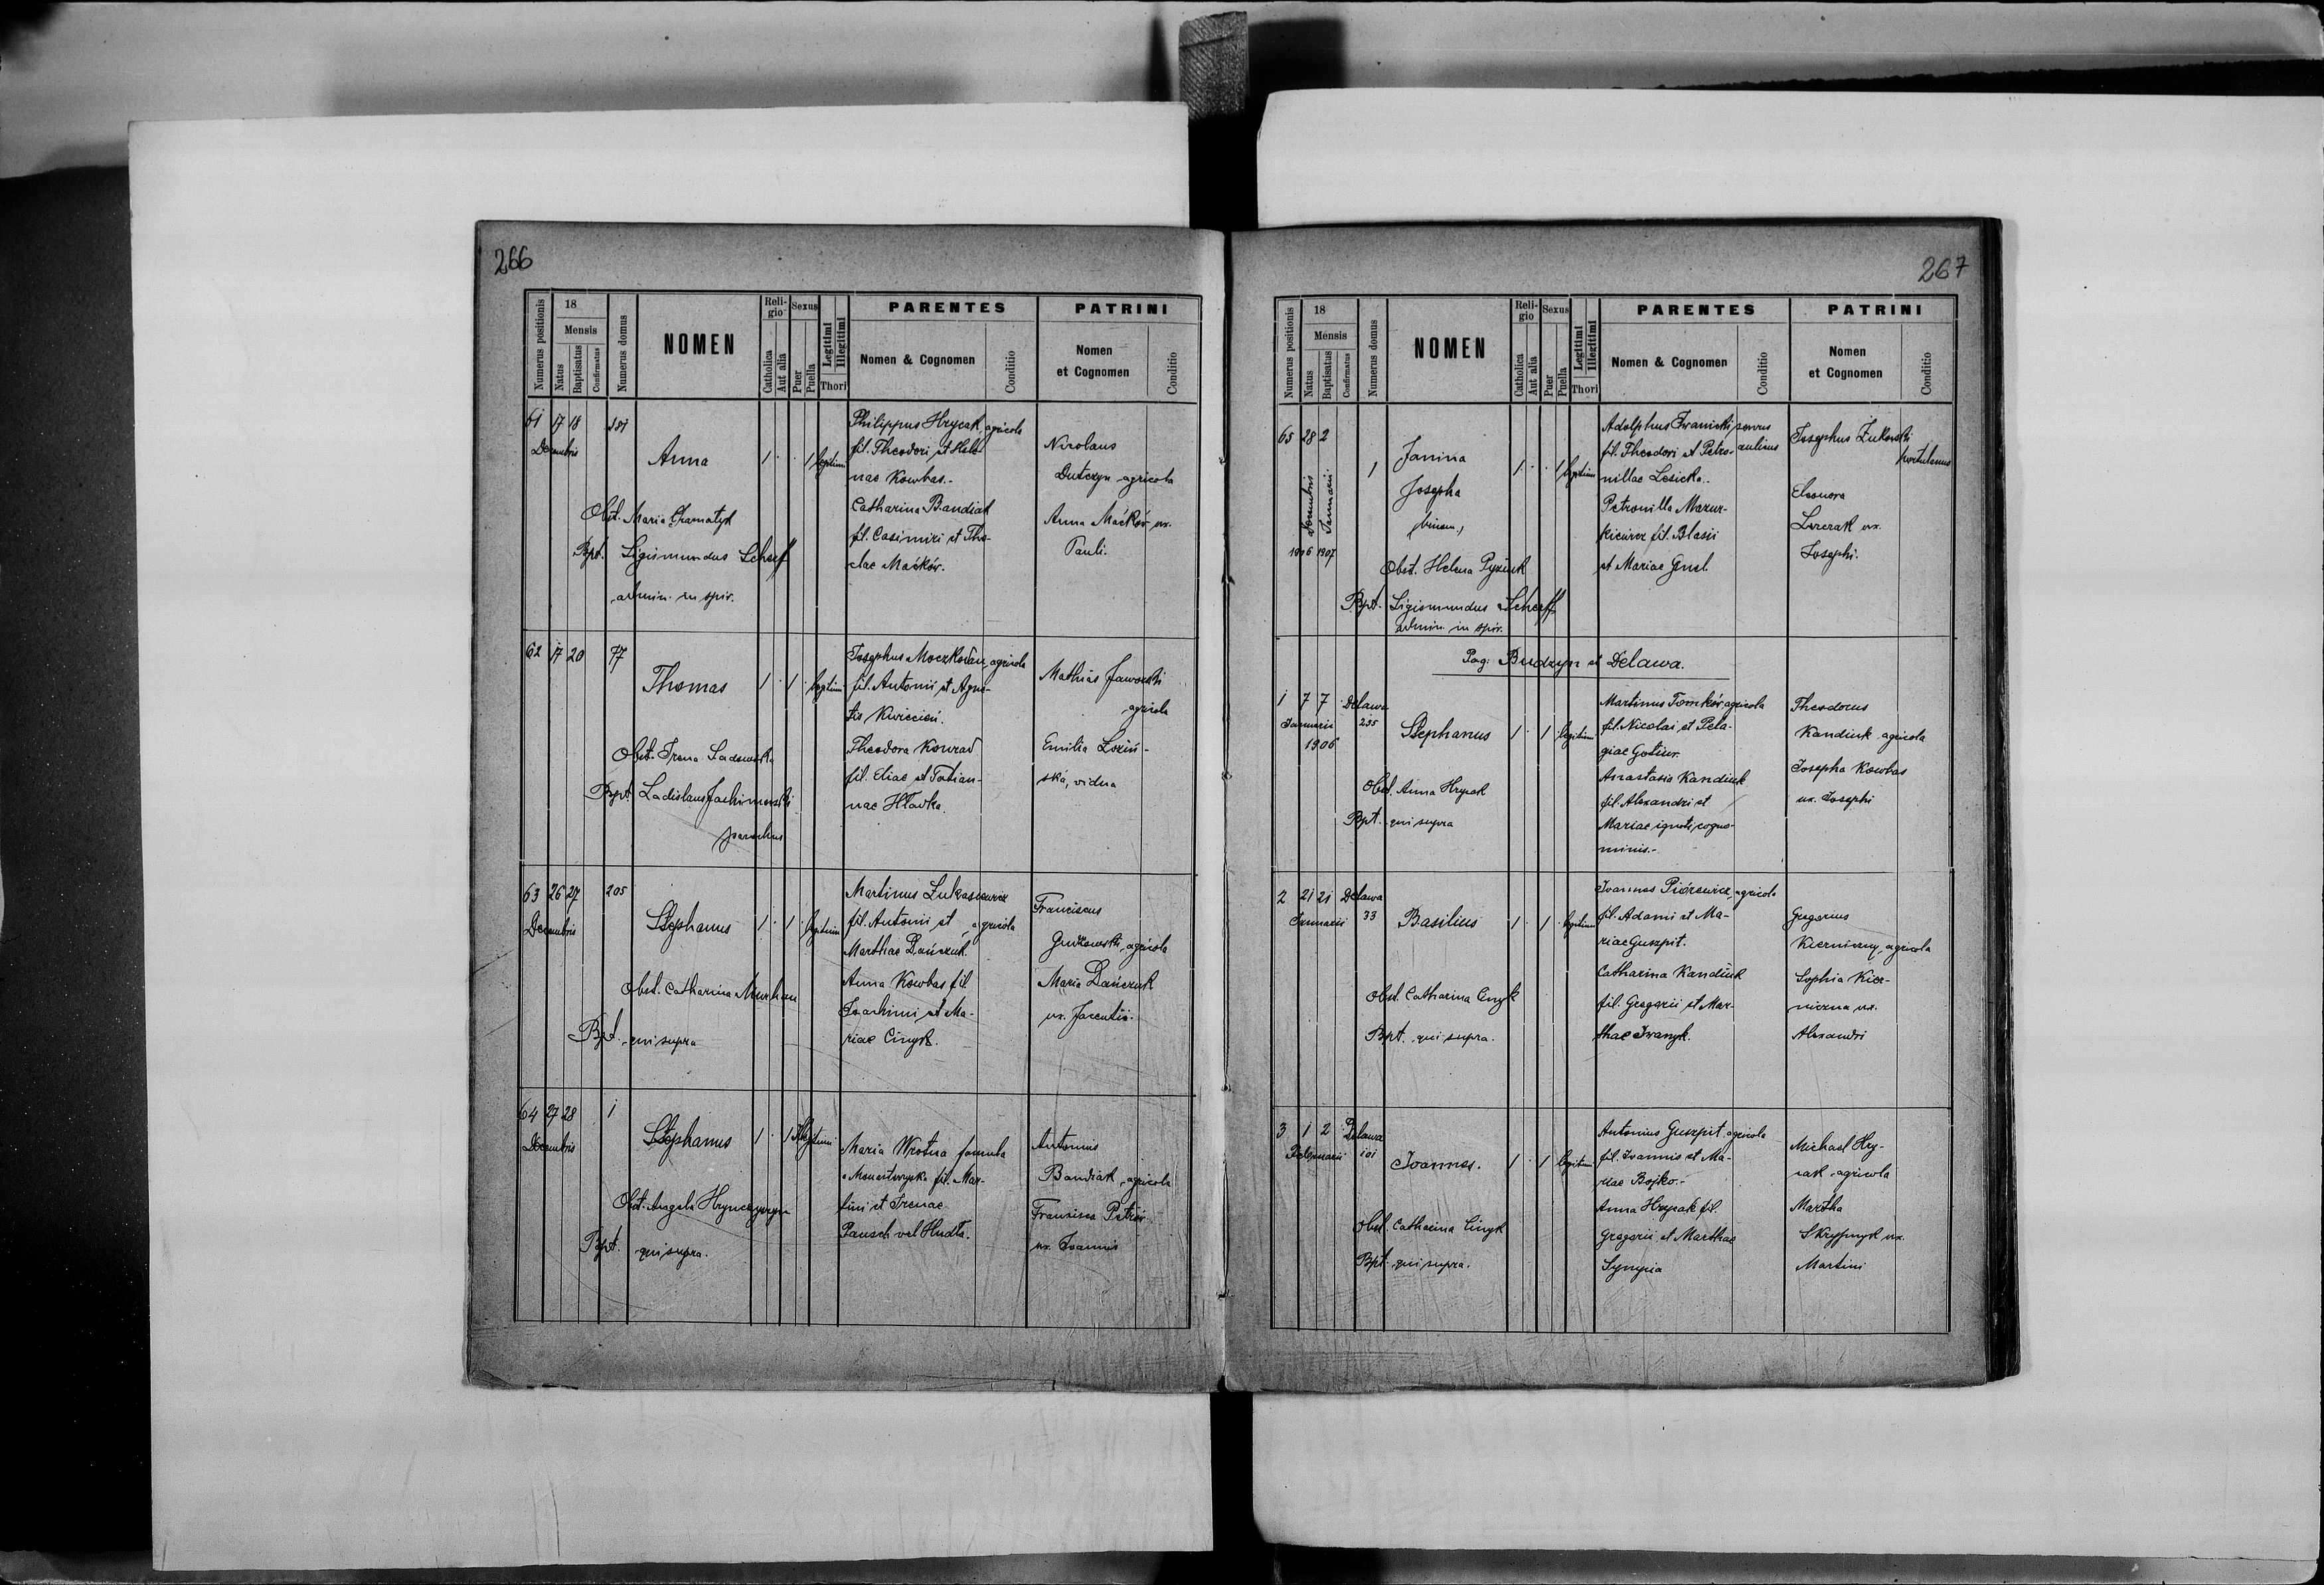 266
Numerus positionis
18
Mensis
Natus
Baptisatus
Confirmatus
Numerus domus
NOMEN
Religio
Catholica
Aut alia
Sexus
Puer
Puella
Legitimi
Illegitimi
Thori
PARENTES
Nomen & Cognomen
Conditio
PATRINI
Nomen
et Cognomen
Conditio
61 17 18
Decembris
Anna
1 1 legitimi
Obst. Maria Gramatyk
Bpt. Sigismundus Scherff
admin. in spir.
Philippus Hrycak, agricola
fil. Theodori et Hele-
nae Kowbas.-
Catharina Bandiak
fil. Casimiri et The-
clae Maćków.
Nicolaus
Dutczyn agricola
Anna Maćków ux.
Pauli.
62 17 20 77
Thomas
1 1 legitimi
Obst. Irena Sadowska
Bpt. Ladislaus Jachimowski
parochus
Josephus Moczkodan, agricola
fil. Antonii et Agne-
tis Kwiecień.
Theodora Konrad
fil. Eliae et Tatian-
nae Hławka.
Mathias Jaworski
agricola
Emilia Loziń-
ska, vidua
63 26 27 205
Decembris
Stephanus
1 1 legitimi
Obst. Catharina Murhan
Bpt. qui supra
Martinus Lukasiewicz
fil. Antonii et agricola
Marthae Dańczuk.
Anna Kowbas fil.
Joachimi et Ma-
riae Cinyk.
Franciscus
Gutkowski, agricola
Maria Dańczuk
ux. Jacentii.
64 27 28 1
Decembris
Stephanus
1 1 Illegitimi
Obst. Angela Hrynczyszyn
Bpt. qui supra.
Maria Wrotna famula
Monasterzyska fil. Mar-
tini et Irenae
Pausch vel Hudta.
Antonius
Bandiak, agricola
Francisca Petrów
ux. Joannis
267
Numerus positionis
18
Mensis
Natus
Baptisatus
Confirmatus
Numerus domus
NOMEN
Religio
Catholica
Aut alia
Sexus
Puer
Puella
Legitimi
Illegitimi
Thori
PARENTES
Nomen & Cognomen
Conditio
PATRINI
Nomen
et Cognomen
Conditio
65 28 2
Decembris Januarii
1906 1907
1
Janina
Josepha
(binom.)
1 1 legitimi
Obst. Helena Pyziuk
Bpt. Sigismundus Scherff
admin. in spir.
Adolphus Iwanicki, servus
fil. Theodori et Petro- aulicus
nillae Lesicka.
Petronilla Mazur-
kiewicz fil. Blasii
et Mariae Gnel.
Josephus Żukowski
hortulanus
Eleonora
ux.
Josephi.
Pag. Budzyn et Delawa.
1 7 7 Delawa
Januarii 235
1906
Stephanus
1 1 legitimi
Obst. Anna Hrycak
Bpt. qui supra
Martinus Tomków, agricola
fil. Nicolai et Pela-
giae Gotiur.
Anastasia Kandiuk
fil. Alexandri et
Mariae ignoti cogno-
minis.-
Theodorus
Kandiuk agricola
Josepha Kowbas
ux. Josephi
2 21 21 Delawa
Januarii 33
Basilius
1 1 legitimi
Obst. Catharina Cinyk
Bpt. qui supra.
Joannes Piórewicz, agricola
fil. Adami et Ma-
riae Guszpit.
Catharina Kandiuk
fil. Gregorii et Mar-
thae Iwanyk.
Gregorius
Kierniczny, agricola
Sophia Kier-
niczna ux.
Alexandri
3 1 2 Delawa
Februarii 101
Joannes.
1 1 legitimi
Obst. Catharina Cinyk
Bpt. qui supra.
Antonius Guszpit agricola
fil. Joannis et Ma-
riae Bojko.-
Anna Hrycak fil.
Gregorii et Marthae
Synyria
Michael Hry-
cak agricola
Martha
Skrypnyk ux.
Martini